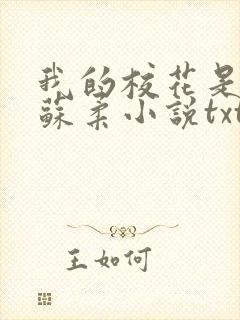 我的校花是
蘇柔小説txt
王如何